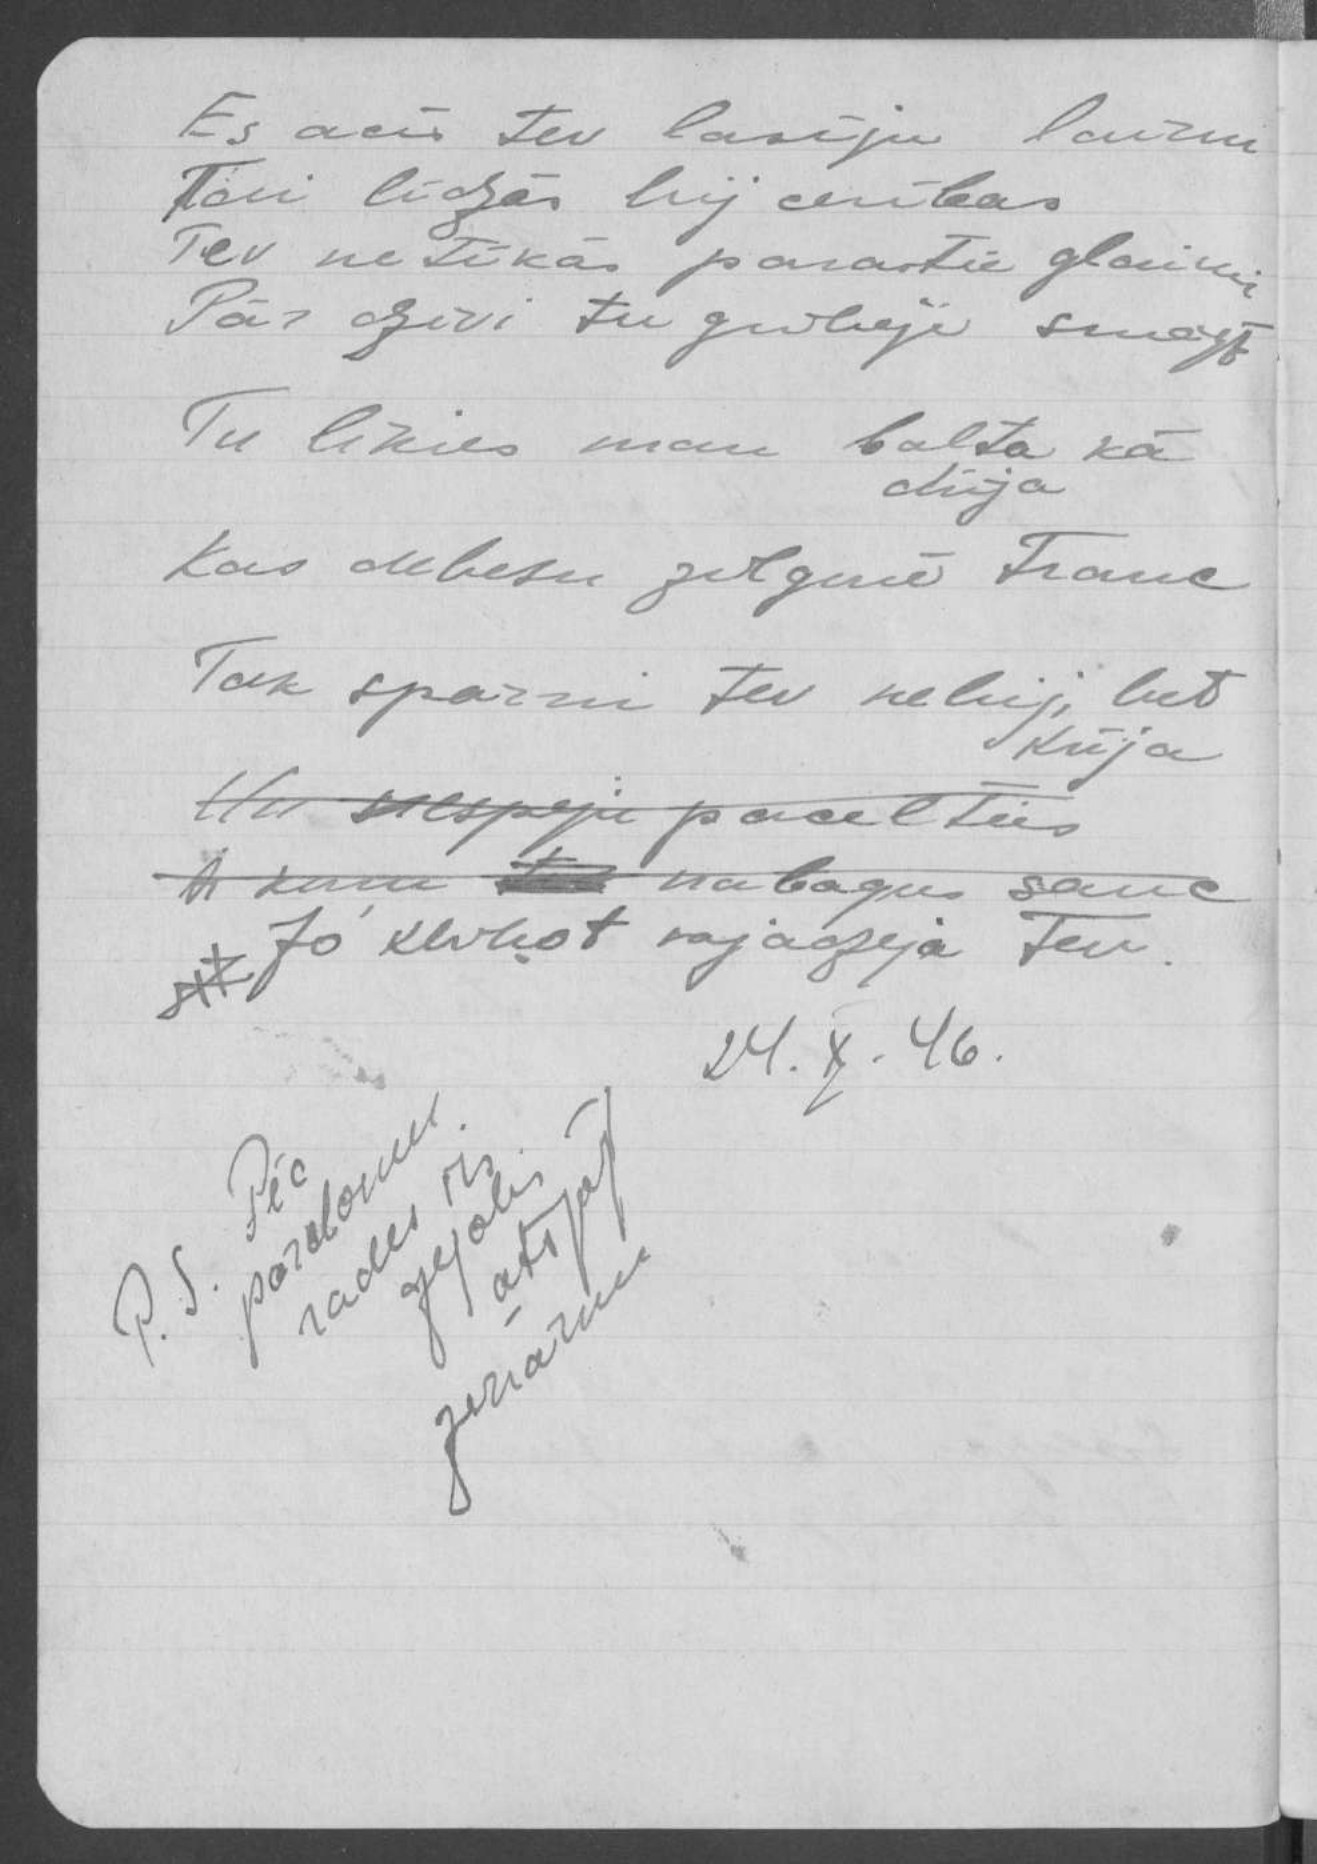 Es acīs tev lasīju laimi
Tavi līdzās bij cerības
Tev ne tikās parastie glaimi
Pār dzīvi tu gribēji smagt
Tu likies man balta kā
dūja
Kas debesu zilgmē Trauc
Tak spārni tev nebij, bet
kūja
Un nespēju pacelties
kuru nabagus sauc
Jo klibot vajadzēja Tev.
24. X. 46.
P.S. Pēc
pardomu.
rades šis
dzejolis
atstāj